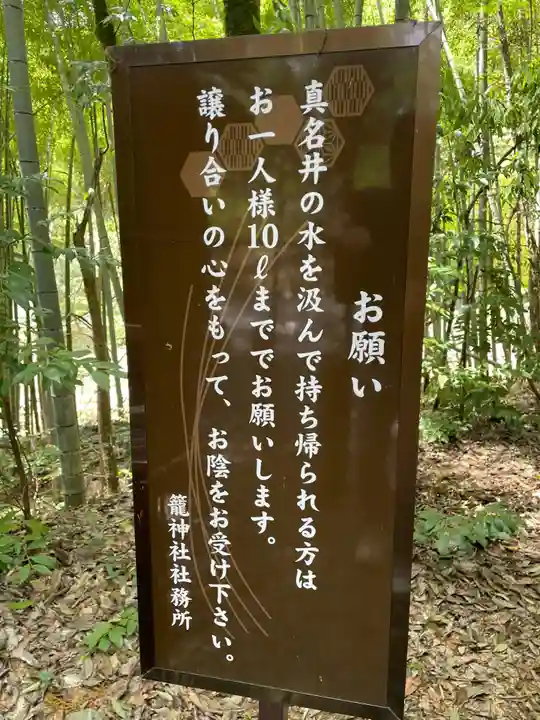 お願い
真名井の水を汲んで持ち帰られる方は
お一人様10ℓまででお願いします。
譲り合いの心をもって、お陰をお受け下さい。
籠神社社務所